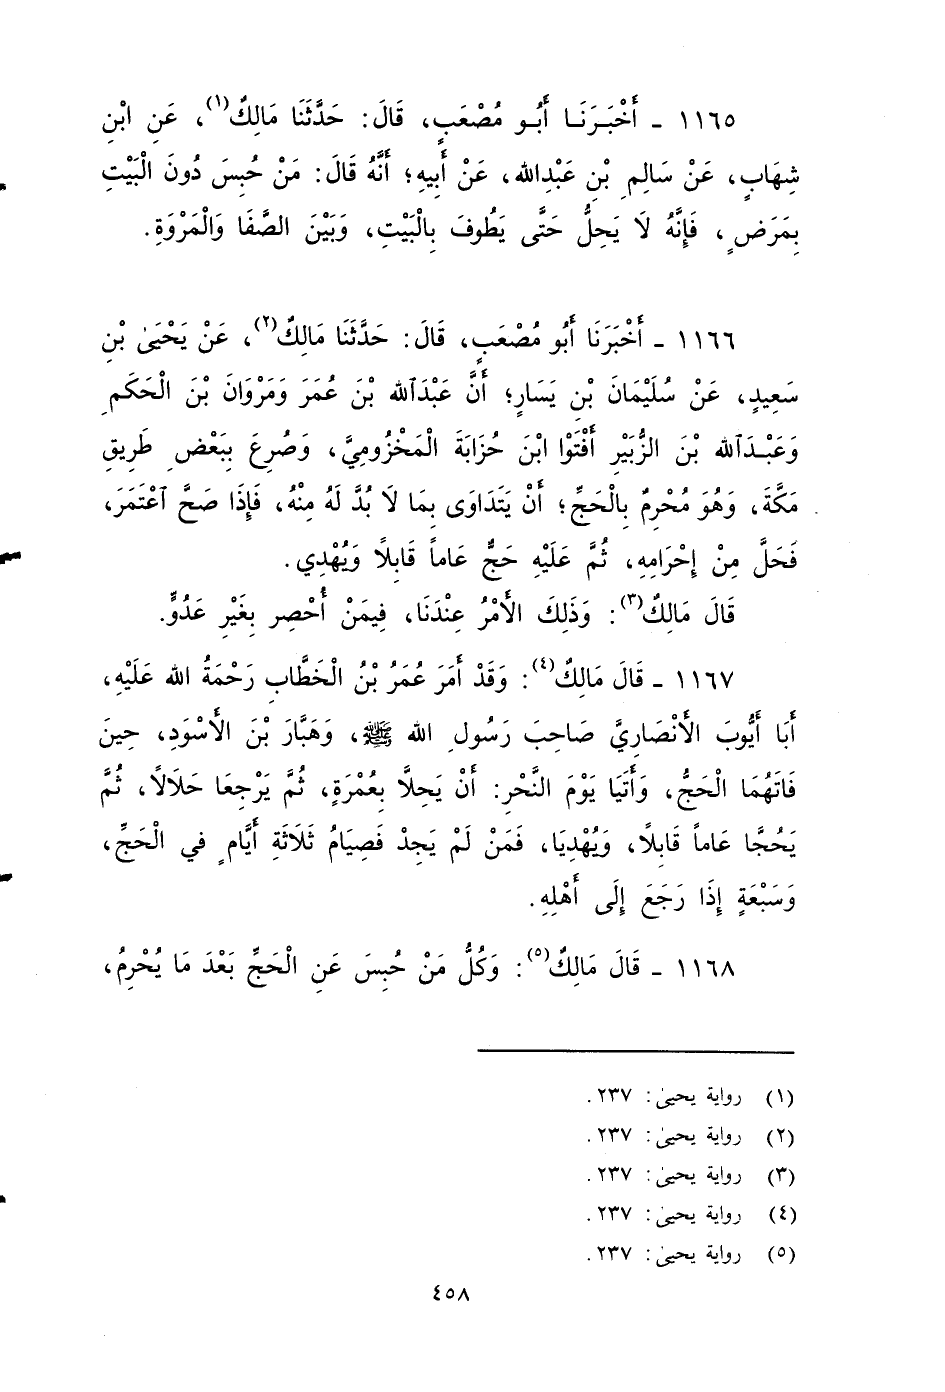 ١١٦٥ ـ أَخْبَرَنَا أَبُو مُصْعَبٍ، قَالَ: حَدَّثَنَا مَالِكٌ(١)، عَنِ ابْنِ
شِهَابٍ، عَنْ سَالِمِ بْنِ عَبْدِالله، عَنْ أَبِيهِ؛ أَنَّهُ قَالَ: مَنْ حُبِسَ دُونَ الْبَيْتِ
بِمَرَضٍ، فَإِنَّهُ لَا يَحِلُّ حَتَّى يَطُوفَ بِالْبَيْتِ، وَبَيْنَ الصَّفَا وَالْمَرْوَةِ.
١١٦٦ ـ أَخْبَرَنَا أَبُو مُصْعَبٍ، قَالَ: حَدَّثَنَا مَالِكٌ(٢)، عَنْ يَحْيَىٰ بْنِ
سَعِيدٍ، عَنْ سُلَيْمَانَ بْنِ يَسَارٍ؛ أَنَّ عَبْدَٱلله بْنَ عُمَرَ وَمَرْوَانَ بْنَ الْحَكَمِ
وَعَبْدَٱلله بْنَ الزُّبَيْرِ أَفْتَوْا ابْنَ حُزَابَةَ الْمَخْزُومِيَّ، وَصُرِعَ بِبَعْضِ طَرِيقِ
مَكَّةَ، وَهُوَ مُحْرِمٌ بِالْحَجِّ؛ أَنْ يَتَدَاوَى بِمَا لَا بُدَّ لَهُ مِنْهُ، فَإِذَا صَحَّ ٱعْتَمَرَ،
فَحَلَّ مِنْ إِحْرَامِهِ، ثُمَّ عَلَيْهِ حَجٌّ عَاماً قَابِلاً وَيُهْدِي.
قَالَ مَالِكٌ(٣): وَذَلِكَ الأَمْرُ عِنْدَنَا، فِيمَنْ أُحْصِر بِغَيْرِ عَدُوٍّ.
١١٦٧ ـ قَالَ مَالِكٌ(٤): وَقَدْ أَمَرَ عُمَرُ بْنُ الْخَطَّابِ رَحْمَةُ الله عَلَيْهِ،
أَبَا أَيُّوبَ الأَنْصَارِيَّ صَاحِبَ رَسُولِ الله ﷺ، وَهَبَّارَ بْنَ الأَسْوَدِ، حِينَ
فَاتَهُمَا الْحَجُّ، وَأَتَيَا يَوْمَ النَّحْرِ: أَنْ يَحِلاَّ بِعُمْرَةٍ، ثُمَّ يَرْجِعَا حَلاَلاً، ثُمَّ
يَحُجَّا عَاماً قَابِلاً، وَيُهْدِيَا، فَمَنْ لَمْ يَجِدْ فَصِيَامُ ثَلاَثَةِ أَيَّامٍ في الْحَجِّ،
وَسَبْعَةٍ إِذَا رَجَعَ إِلَى أَهْلِهِ.
١١٦٨ ـ قَالَ مَالِكٌ(٥): وَكُلُّ مَنْ حُبِسَ عَنِ الْحَجِّ بَعْدَ مَا يُحْرِمُ،
(١) رواية يحيىٰ: ٢٣٧.
(٢) رواية يحيىٰ: ٢٣٧.
(٣) رواية يحيىٰ: ٢٣٧.
(٤) رواية يحيىٰ: ٢٣٧.
(٥) رواية يحيىٰ: ٢٣٧.
٤٥٨